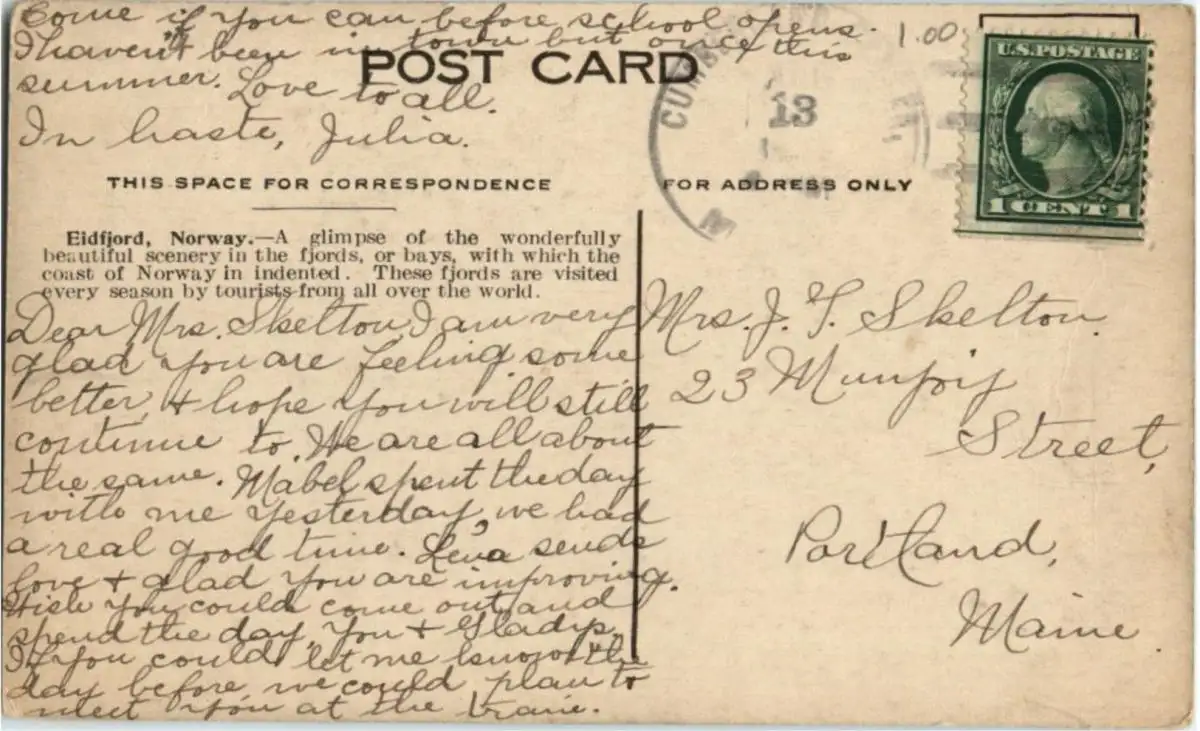 Come if you can before school opens.
I haven't been in town but once this
summer. Love to all.
In haste, Julia.
1.00
POST CARD
U.S. POSTAGE
1 CENT 1
13
THIS SPACE FOR CORRESPONDENCE
FOR ADDRESS ONLY
Eidfjord, Norway.—A glimpse of the wonderfully
beautiful scenery in the fjords, or bays, with which the
coast of Norway in indented. These fjords are visited
every season by tourists from all over the world.
Dear Mrs. Skelton, I am very
glad you are feeling some
better, + hope you will still
continue to. We are all about
the same. Mabel spent the day
with me yesterday, we had
a real good time. Lena sends
love + glad you are improving.
Wish you could come out and
spend the day, you + Gladys.
If you could let me know the
day before, we could plan to
meet you at the train.
Mrs. J. T. Skelton.
23 Munjoy
Street,
Portland,
Maine